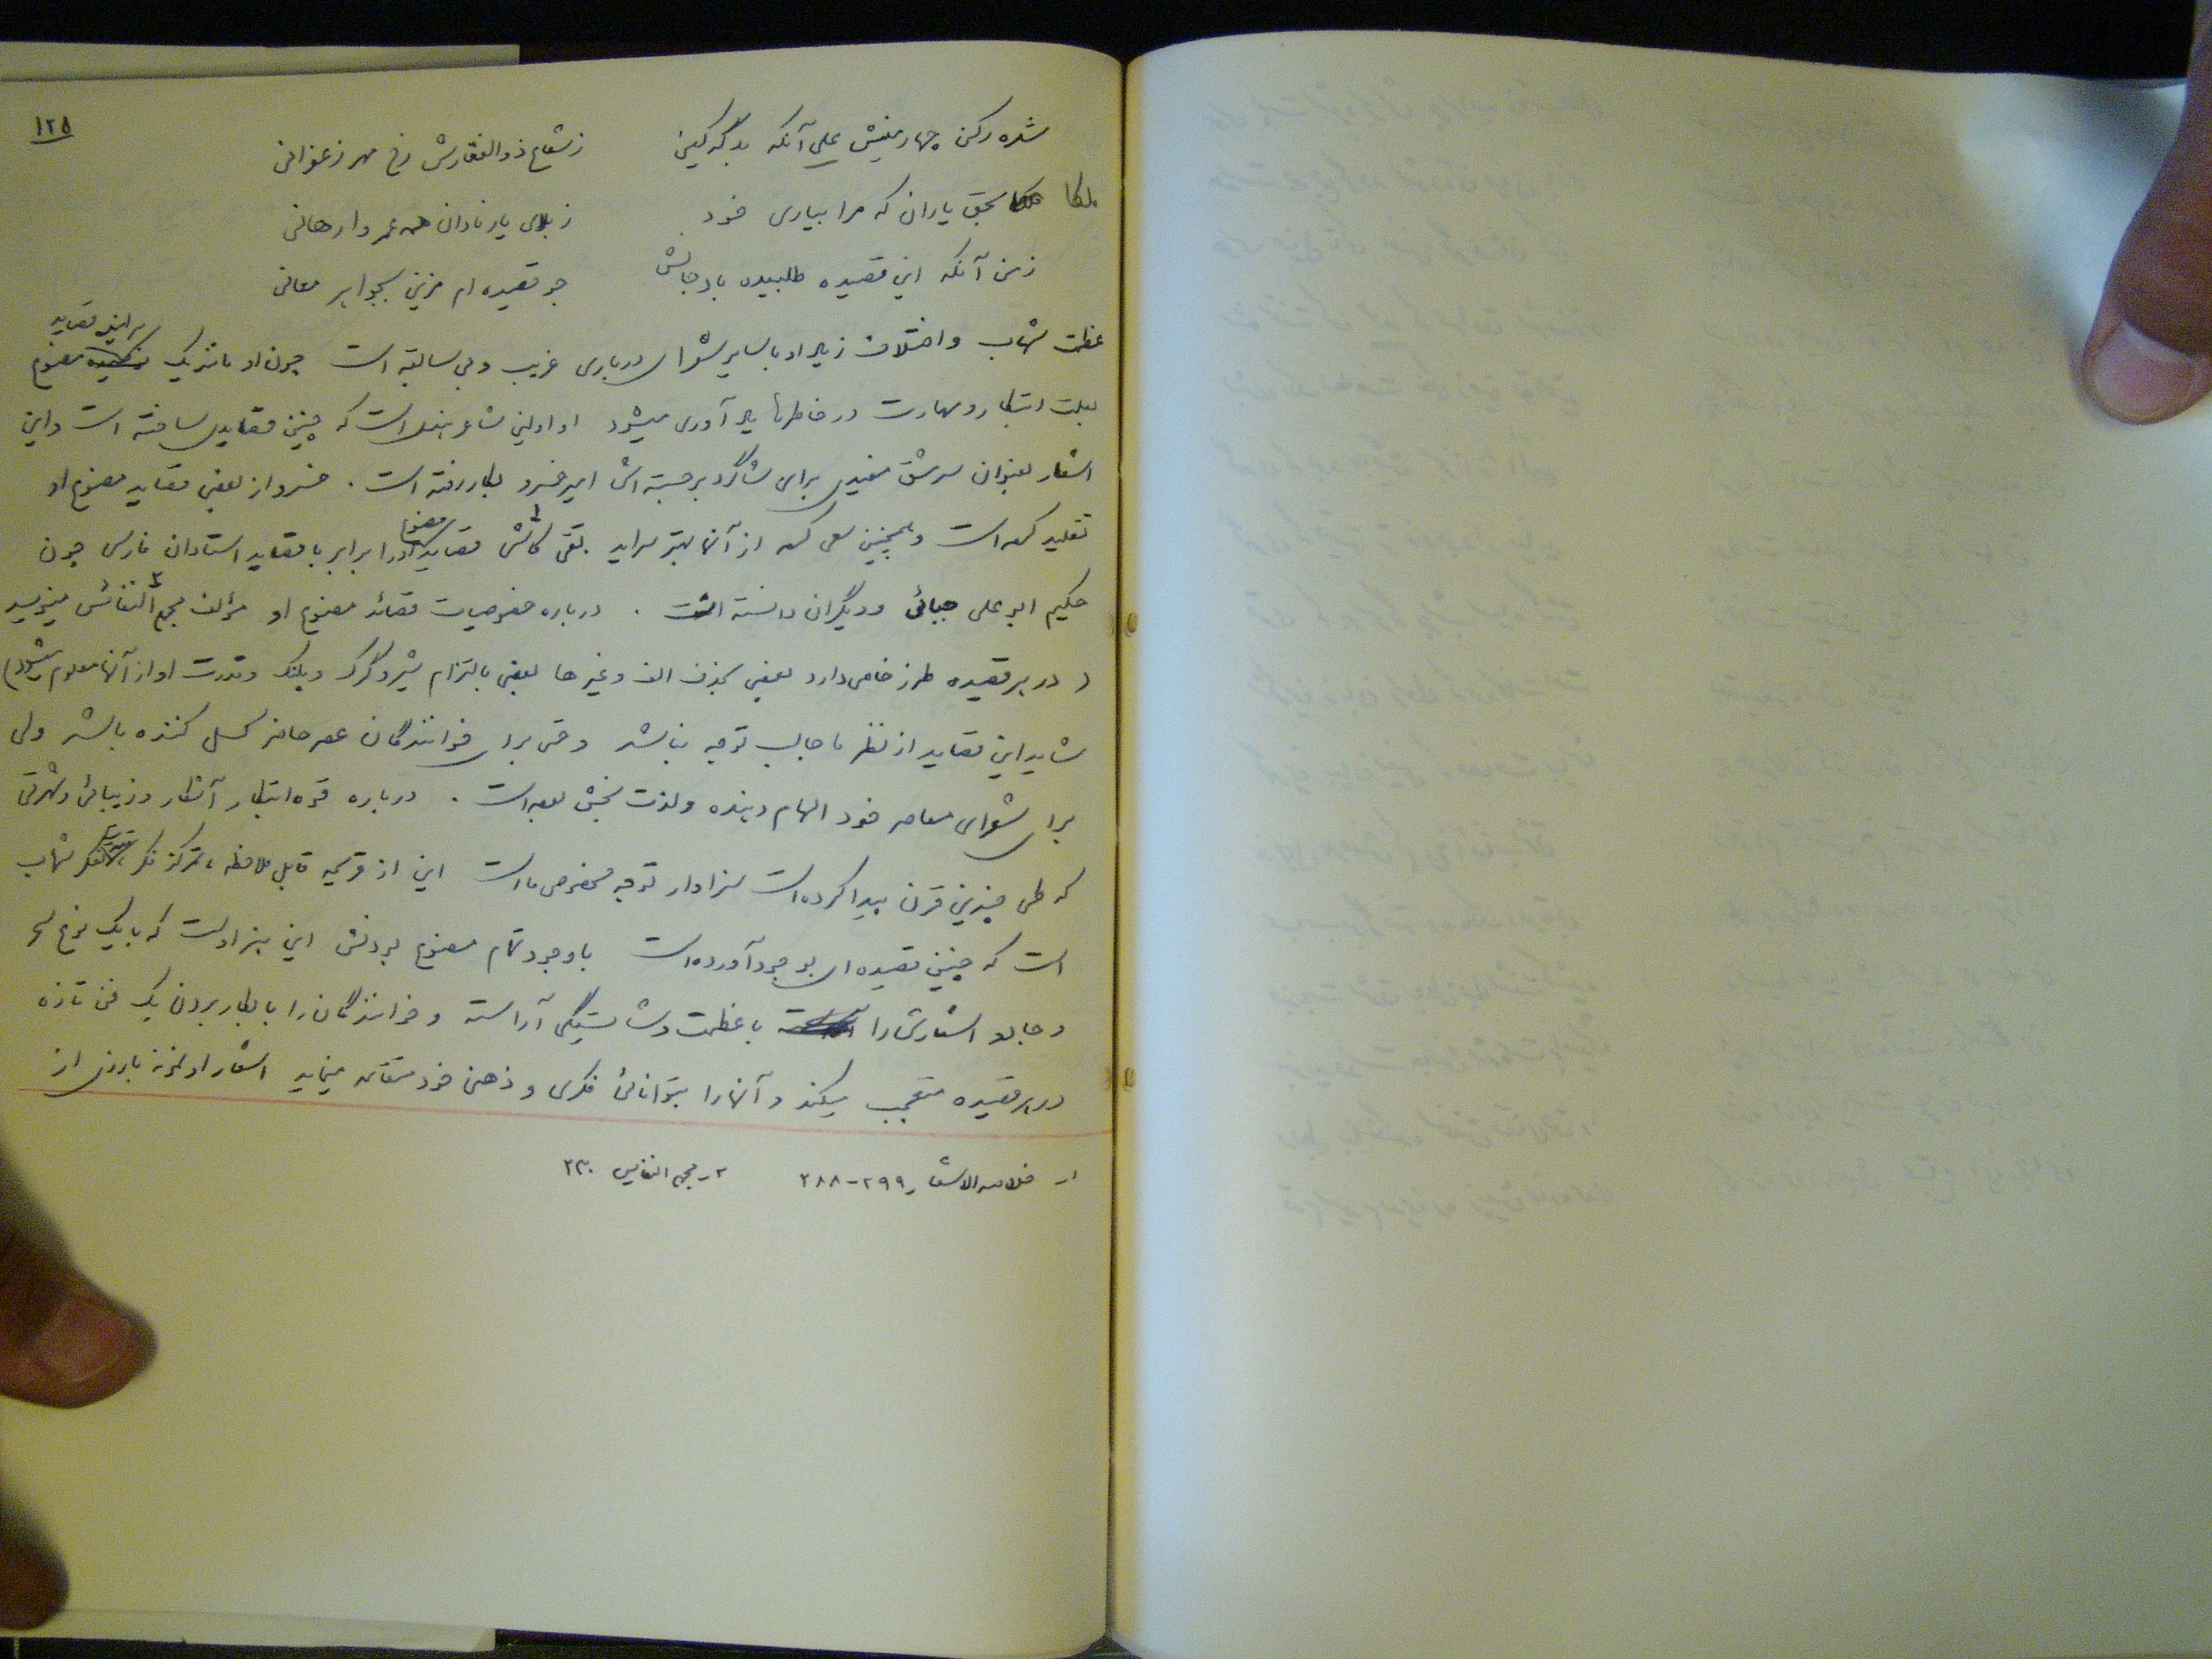 ۱۲۵
شده رکن چهارمینش علی آنکه بدگه کین زشعاع ذوالفقارش رخ مهر زعفرانی
ملکا بحق یاران که مرا بیاری خود ز بلای یار نادان همه عمر وارهانی
زمن آنکه این قصیده طلبیده باد جانش چو قصیده ام مزین بجواهر معانی
عظمت شهاب و اختلاف زیاد او با سایر شعرای درباری غریب و بی سابقه است چون او مانند یک مصنوع
براین قصاید
بعلت ابتکار و مهارت در خاطرها یاد آوری میشود او اولین شاعر هند است که چنین قصایدی ساخته است و این
اشعار بعنوان سرمشق مفیدی برای شاگرد برجسته اش امیر خسرو بکار رفته است . خسرو از بعضی قصاید مصنوع او
تقلید کرده است و همچنین سعی کرده از آنها بهتر سراید . تقی کاشی ۱ قصاید مصنوع او را برابر با قصاید استادان فارسی چون
حکیم ابو علی جبائی و دیگران دانسته است . درباره خصوصیات قصائد مصنوع او مؤلف مجمع النفائس ۲ مینویسد
( در هر قصیده طرز خاصی دارد بعضی بحذف الف و غیرها بعضی بالتزام شیر و گرگ و پلنگ و قدرت او از آنها معلوم میشود )
شاید این قصاید از نظر ما جالب توجه نباشد و حتی برای خوانندگان عصر حاضر کسل کننده باشد ولی
برای شعرای معاصر خود الهام دهنده و لذت بخش بوده است . درباره قوه ابتکار آشکار و زیبائی و شهرتی
که طی چندین قرن پیدا کرده است سزاوار توجه مخصوص ما است این از قریحه قابل ملاحظه ، تمرکز فکر ، تفکر شهاب
است که چنین قصیده ای بوجود آورده است با وجود تمام مصنوع بودنش این هنر اوست که با یک نوع سحر
و جادو اشعارش را با عظمت و شایستگی آراسته و خوانندگان را با بکار بردن یک فن تازه
در هر قصیده متعجب میکند و آنها را بتوانائی فکری و ذهنی خود متقاعد مینماید اشعار او نمونه بارزی از
۱ـ خلاصه الاشعار ۲۹۹-۲۸۸ ۲ـ مجمع النفایس ۲۳۰